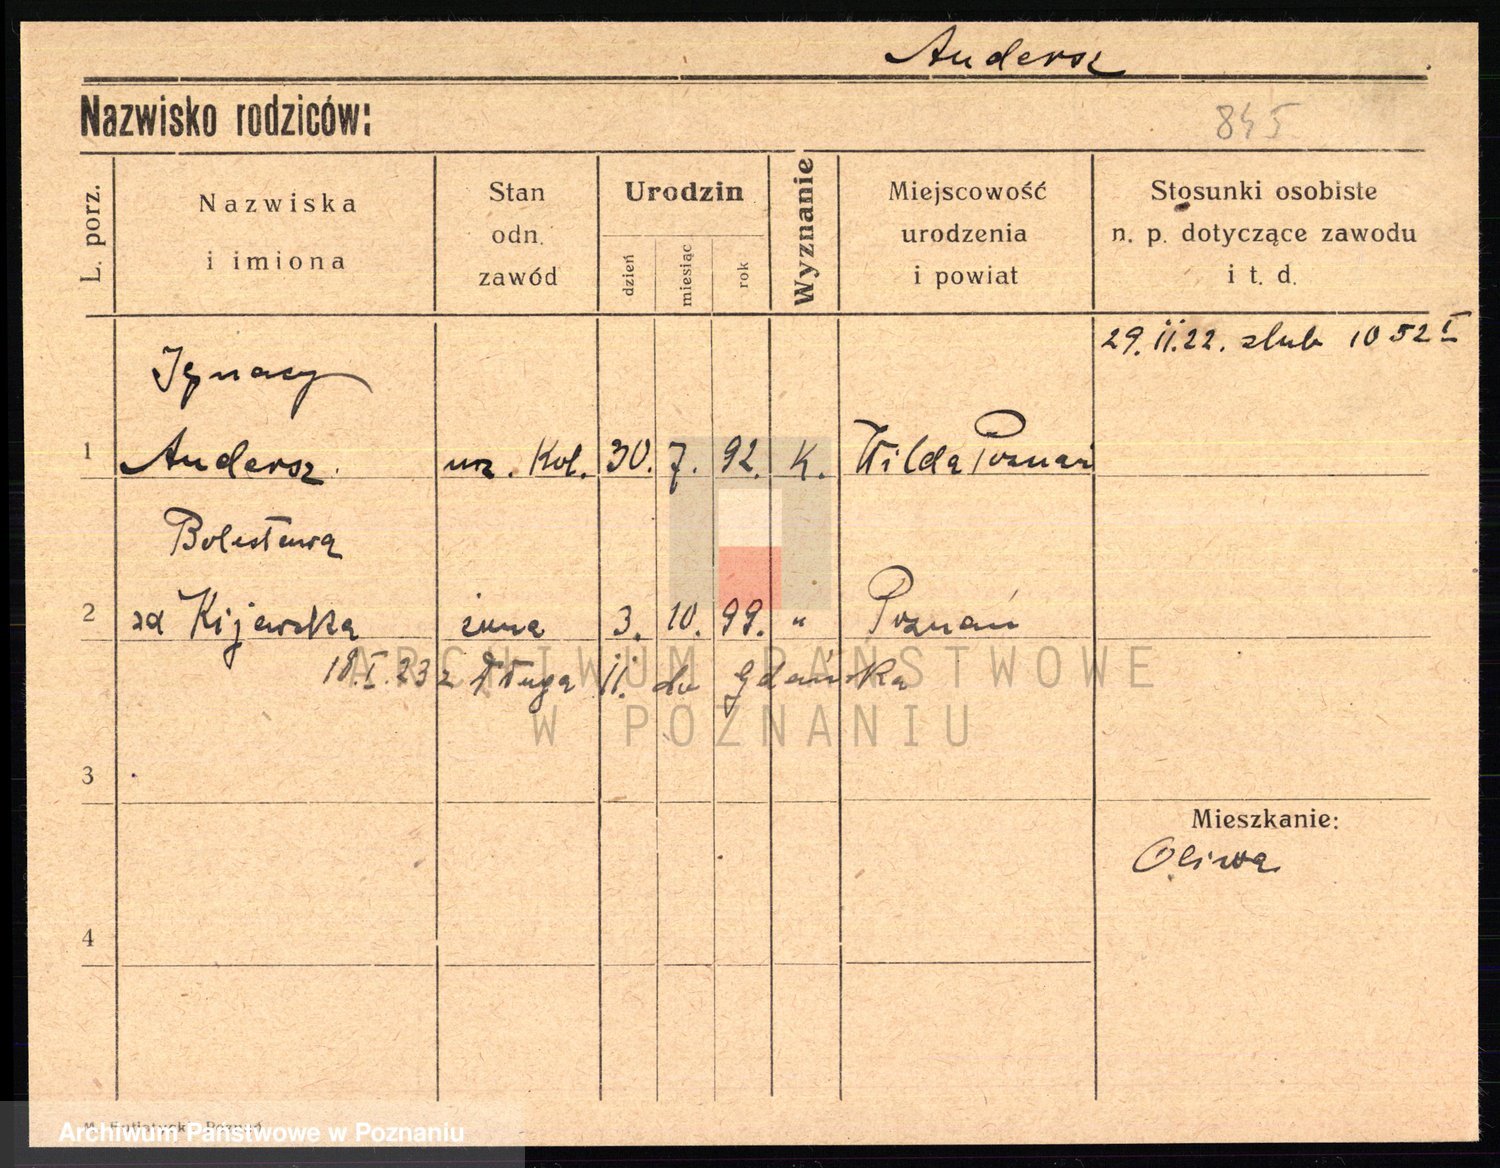 Andersz
Nazwisko rodziców:
845
L. porz.
Nazwiska
i imiona
Stan
odn.
zawód
Urodzin
dzień
miesiąc
rok
Wyznanie
Miejscowość
urodzenia
i powiat
Stosunki osobiste
n. p. dotyczące zawodu
i t. d.
29. II. 22. ślub 1052 I
Ignacy
1 Andersz urz. Kol. 30. 7. 92. K. Wilda Poznań
2 zd Kijewska żona 3. 10. 99. " Poznań
18. I. 23 z Długa II. do Gdańska
ARCHIWUM PAŃSTWOWE
W POZNANIU
3
Mieszkanie:
Oliwa
4
Archiwum Państwowe w Poznaniu